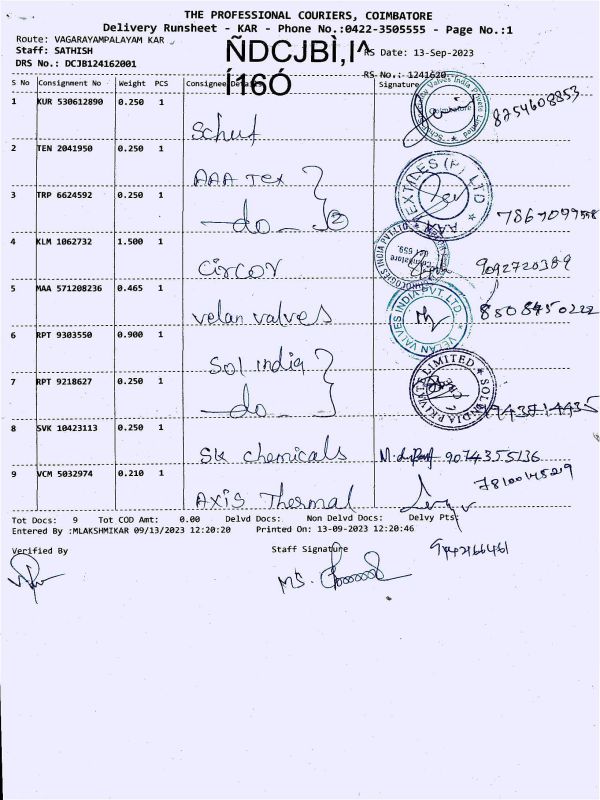 THE PROFESSIONAL COURIERS, COIMBATORE
Delivery Runsheet - KAR - Phone No.:0422-3505555 - Page No.:1
Route: VAGARAYAMPALAYAM KAR
Staff: SATHISH
RS Date: 13-Sep-2023
DRS No.: DCJB124162001
ÑDCJBÌ,|^
Í16Ó
RS No.: 1241620
S No Consignment No Weight PCS Consignee Details Signature
1 KUR 530612890 0.250 1
Schuf
8254608853
2 TEN 2041950 0.250 1
AAA Tex
AAA TEXTILES (P) LTD
3 TRP 6624592 0.250 1
do 2
7867099558
4 KLM 1062732 1.500 1
Circor
9092720389
5 MAA 571208236 0.465 1
velan valves
VELAN VALVES INDIA PVT. LTD.
8508450222
6 RPT 9303550 0.900 1
Sol india
SOL INDIA PRIVATE LIMITED
7 RPT 9218627 0.250 1
do
8 SVK 10423113 0.250 1
SK chemicals
9074355136
9 VCM 5032974 0.210 1
AXIS Thermal
Tot Docs: 9 Tot COD Amt: 0.00 Delvd Docs: Non Delvd Docs: Delvy Pts:
Entered By :MLAKSHMIKAR 09/13/2023 12:20:20 Printed On: 13-09-2023 12:20:46
Verified By Staff Signature
MS.